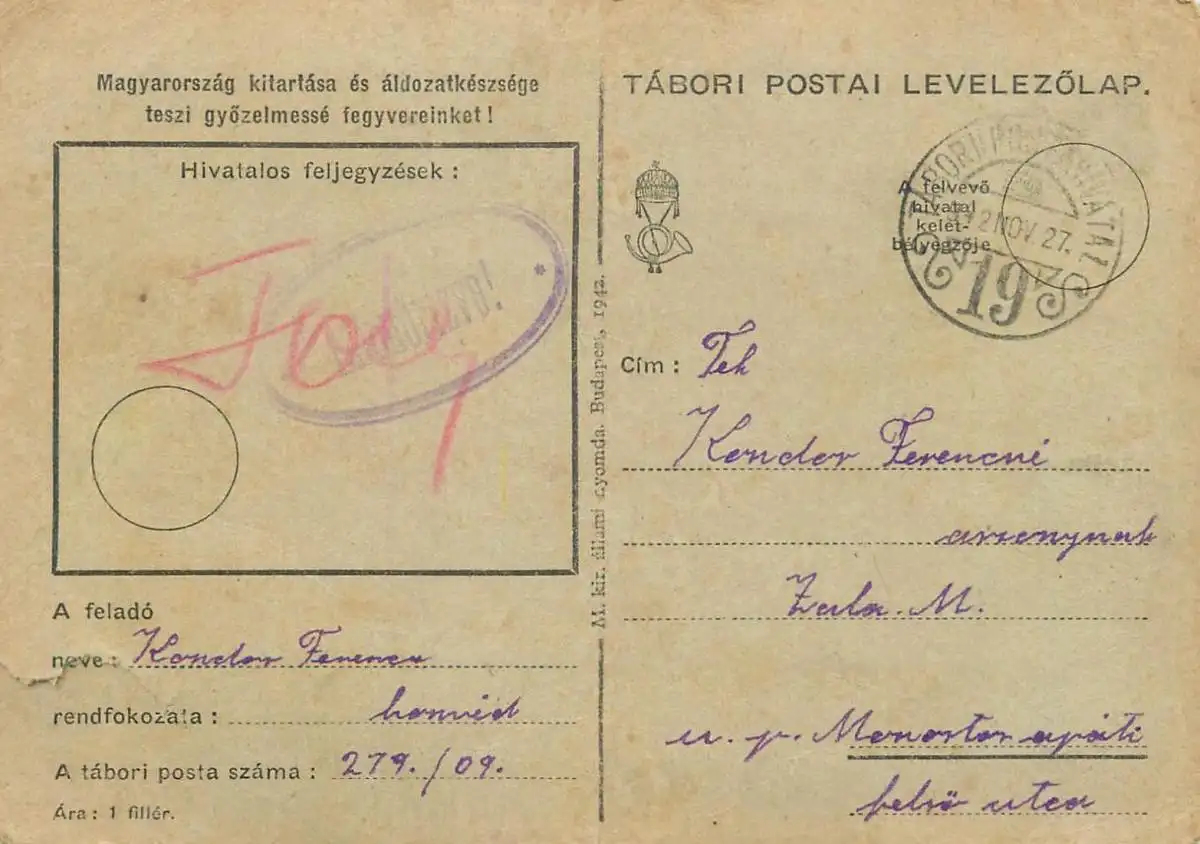 Magyarország kitartása és áldozatkészsége
teszi győzelmessé fegyvereinket!
Hivatalos feljegyzések:
A feladó
neve: Kondor Ferenc
rendfokozata: honvéd
A tábori posta száma: 279./09.
Ára: 1 fillér.
M. kir. állami nyomda. Budapest, 1942.
TÁBORI POSTAI LEVELEZŐLAP.
A felvevő
hivatal
kelet-
bélyegzője
TÁBORI POSTAHIVATAL
42 NOV. 27.
19
Cím: Tek
Kondor Ferencné
asszonynak
Zala. M.
u. p. Monostorapáti
felső utca